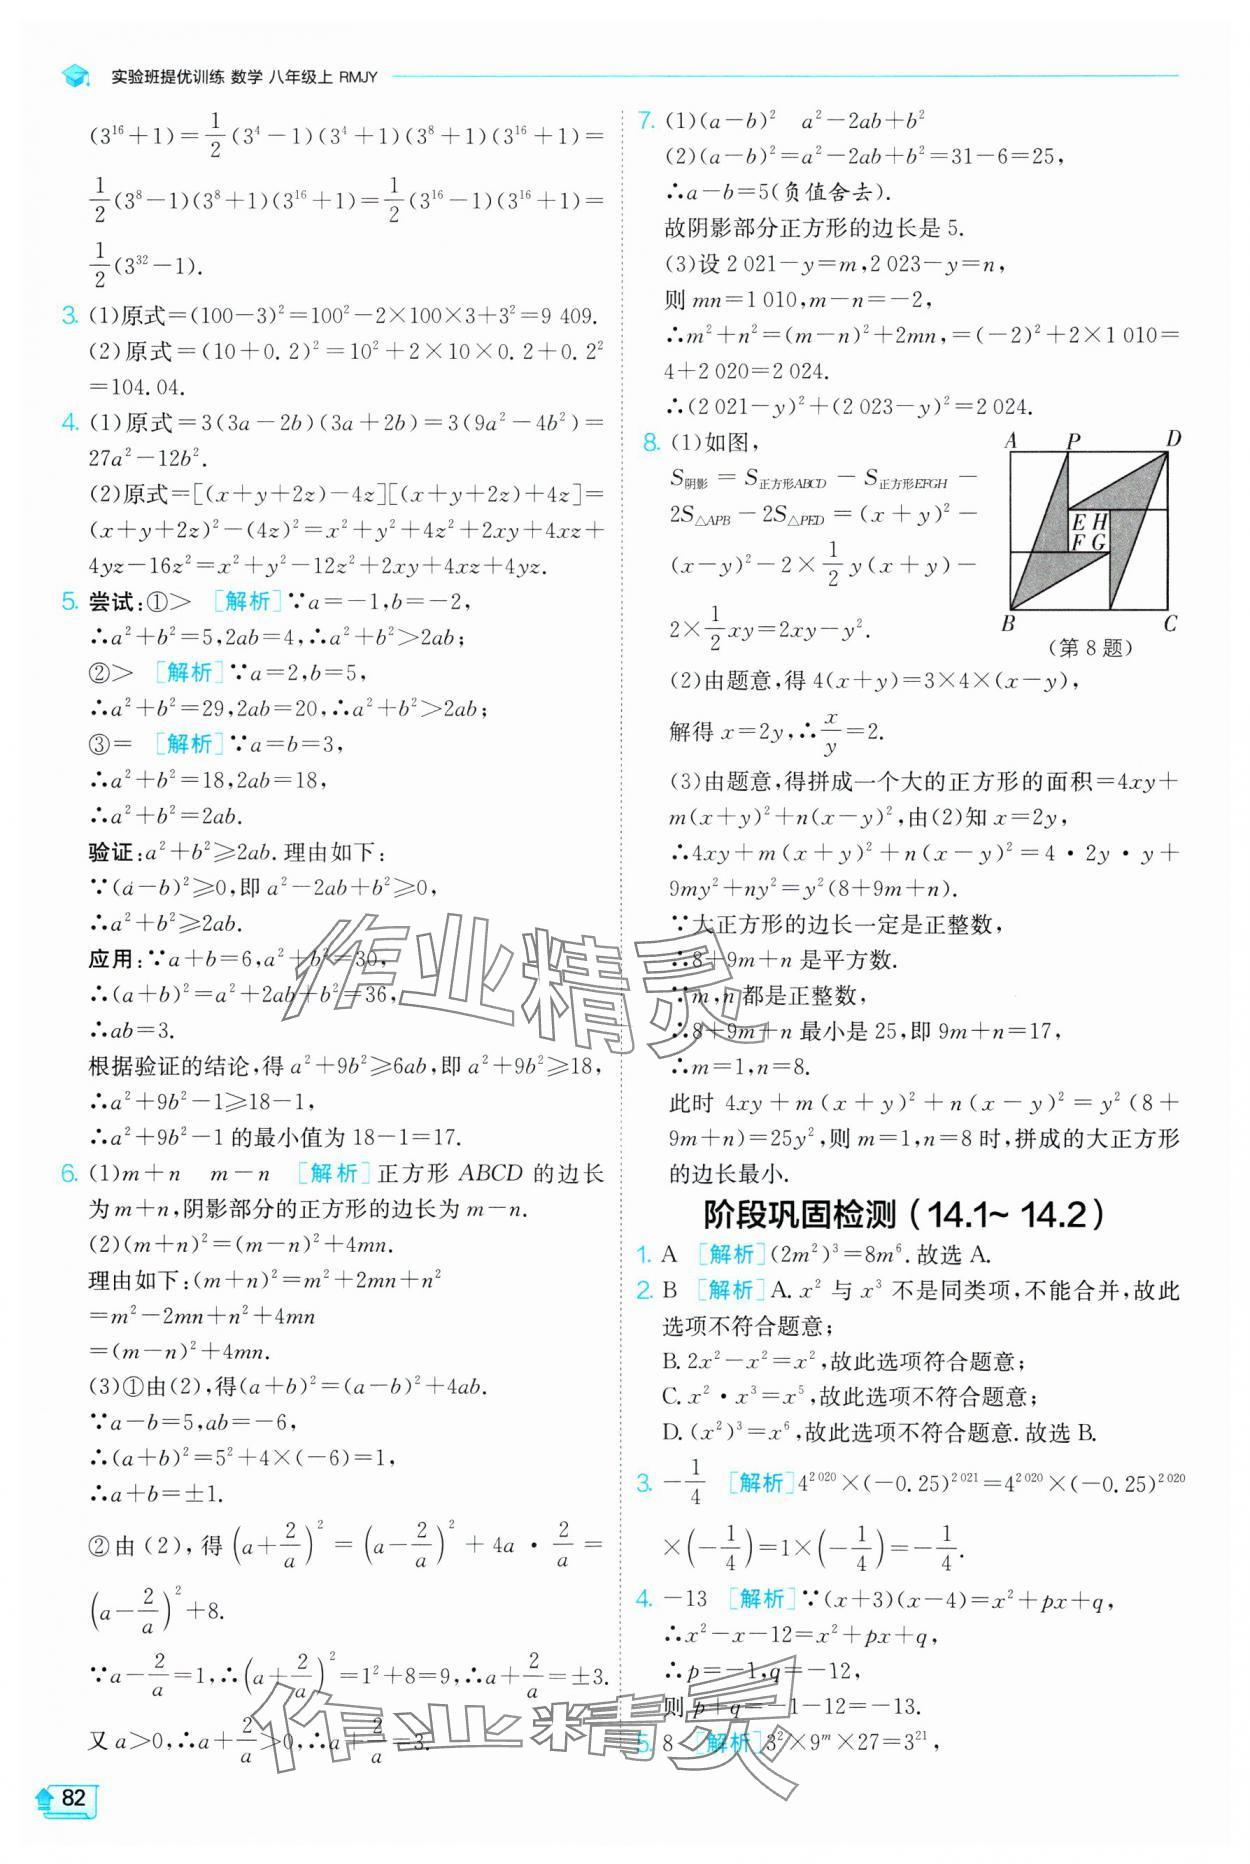 实验班提优训练 数学 八年级上 RMJY
(3¹⁶+1)=1/2(3⁴-1)(3⁴+1)(3⁸+1)(3¹⁶+1)=
1/2(3⁸-1)(3⁸+1)(3¹⁶+1)=1/2(3¹⁶-1)(3¹⁶+1)=
1/2(3³²-1).
3. (1)原式=(100-3)²=100²-2×100×3+3²=9 409.
(2)原式=(10+0.2)²=10²+2×10×0.2+0.2²
=104.04.
4. (1)原式=3(3a-2b)(3a+2b)=3(9a²-4b²)=
27a²-12b².
(2)原式=[(x+y+2z)-4z][(x+y+2z)+4z]=
(x+y+2z)²-(4z)²=x²+y²+4z²+2xy+4xz+
4yz-16z²=x²+y²-12z²+2xy+4xz+4yz.
5. 尝试:①> [解析]∵a=-1,b=-2,
∴a²+b²=5,2ab=4,∴a²+b²>2ab;
②> [解析]∵a=2,b=5,
∴a²+b²=29,2ab=20,∴a²+b²>2ab;
③= [解析]∵a=b=3,
∴a²+b²=18,2ab=18,
∴a²+b²=2ab.
验证:a²+b²≥2ab.理由如下:
∵(a-b)²≥0,即a²-2ab+b²≥0,
∴a²+b²≥2ab.
应用:∵a+b=6,a²+b²=30,
∴(a+b)²=a²+2ab+b²=36,
∴ab=3.
根据验证的结论,得a²+9b²≥6ab,即a²+9b²≥18,
∴a²+9b²-1≥18-1,
∴a²+9b²-1的最小值为18-1=17.
6. (1)m+n m-n [解析]正方形ABCD的边长
为m+n,阴影部分的正方形的边长为m-n.
(2)(m+n)²=(m-n)²+4mn.
理由如下:(m+n)²=m²+2mn+n²
=m²-2mn+n²+4mn
=(m-n)²+4mn.
(3)①由(2),得(a+b)²=(a-b)²+4ab.
∵a-b=5,ab=-6,
∴(a+b)²=5²+4×(-6)=1,
∴a+b=±1.
②由(2),得(a+2/a)²=(a-2/a)²+4a·2/a=
(a-2/a)²+8.
∵a-2/a=1,∴(a+2/a)²=1²+8=9,∴a+2/a=±3.
又a>0,∴a+2/a>0,∴a+2/a=3.
82
7. (1)(a-b)² a²-2ab+b²
(2)(a-b)²=a²-2ab+b²=31-6=25,
∴a-b=5(负值舍去).
故阴影部分正方形的边长是5.
(3)设2 021-y=m,2 023-y=n,
则mn=1 010,m-n=-2,
∴m²+n²=(m-n)²+2mn,=(-2)²+2×1 010=
4+2 020=2 024.
∴(2 021-y)²+(2 023-y)²=2 024.
8. (1)如图,
S阴影=S正方形ABCD-S正方形EFGH-
2S△APB-2S△PED=(x+y)²-
(x-y)²-2×1/2y(x+y)-
2×1/2xy=2xy-y².
A P D
E H
F G
B C
(第8题)
(2)由题意,得4(x+y)=3×4×(x-y),
解得x=2y,∴x/y=2.
(3)由题意,得拼成一个大的正方形的面积=4xy+
m(x+y)²+n(x-y)²,由(2)知x=2y,
∴4xy+m(x+y)²+n(x-y)²=4·2y·y+
9my²+ny²=y²(8+9m+n).
∵大正方形的边长一定是正整数,
∴8+9m+n是平方数.
∵m,n都是正整数,
∴8+9m+n最小是25,即9m+n=17,
∴m=1,n=8.
此时4xy+m(x+y)²+n(x-y)²=y²(8+
9m+n)=25y²,则m=1,n=8时,拼成的大正方形
的边长最小.
阶段巩固检测(14.1~14.2)
1. A [解析](2m²)³=8m⁶.故选A.
2. B [解析]A.x²与x³不是同类项,不能合并,故此
选项不符合题意;
B.2x²-x²=x²,故此选项符合题意;
C.x²·x³=x⁵,故此选项不符合题意;
D.(x²)³=x⁶,故此选项不符合题意.故选B.
3. -1/4 [解析]4²⁰²⁰×(-0.25)²⁰²¹=4²⁰²⁰×(-0.25)²⁰²⁰
×(-1/4)=1×(-1/4)=-1/4.
4. -13 [解析]∵(x+3)(x-4)=x²+px+q,
∴x²-x-12=x²+px+q,
∴p=-1,q=-12,
则p+q=-1-12=-13.
5. 8 [解析]3²×9ᵐ×27=3²¹,
作业精灵
作业精灵